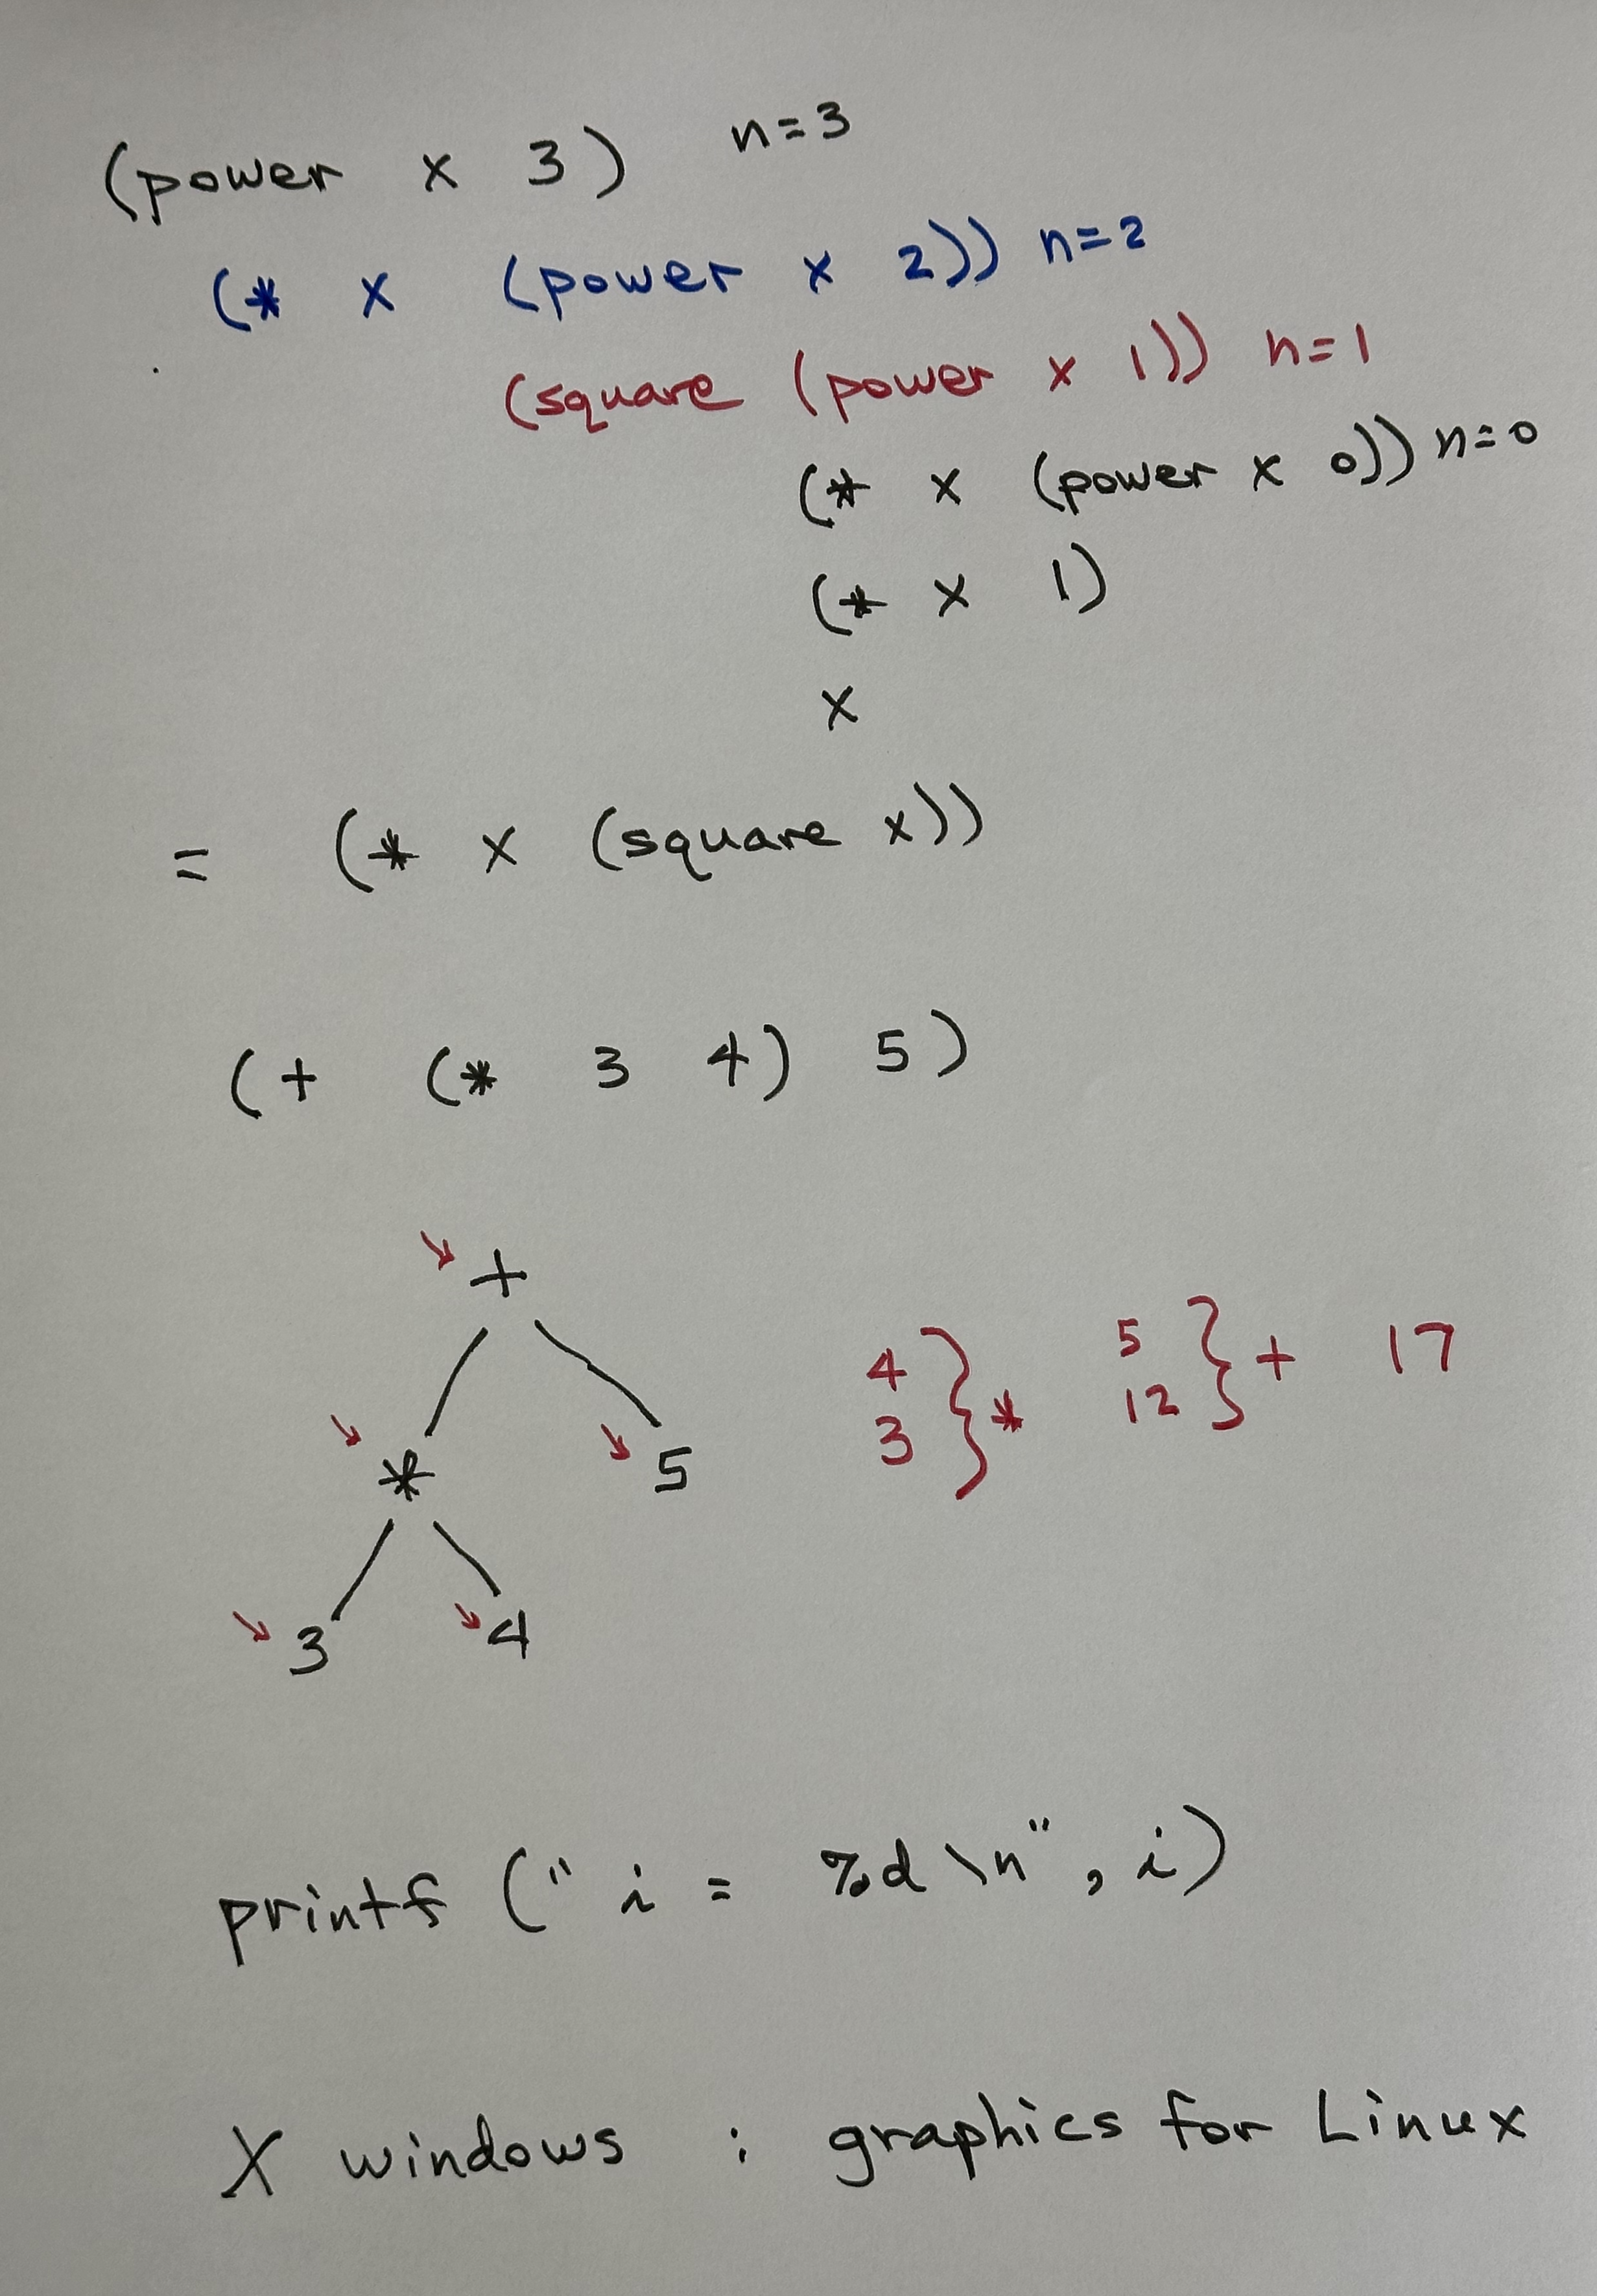 (power x 3) n=3
(* x (power x 2)) n=2
(square (power x 1)) n=1
(* x (power x 0)) n=0
(* x 1)
x
= (* x (square x))
(+ (* 3 4) 5)
+
* 5
3 4
4 3 } *
5 12 } + 17
printf (" i = %d \n", i)
X windows : graphics for Linux